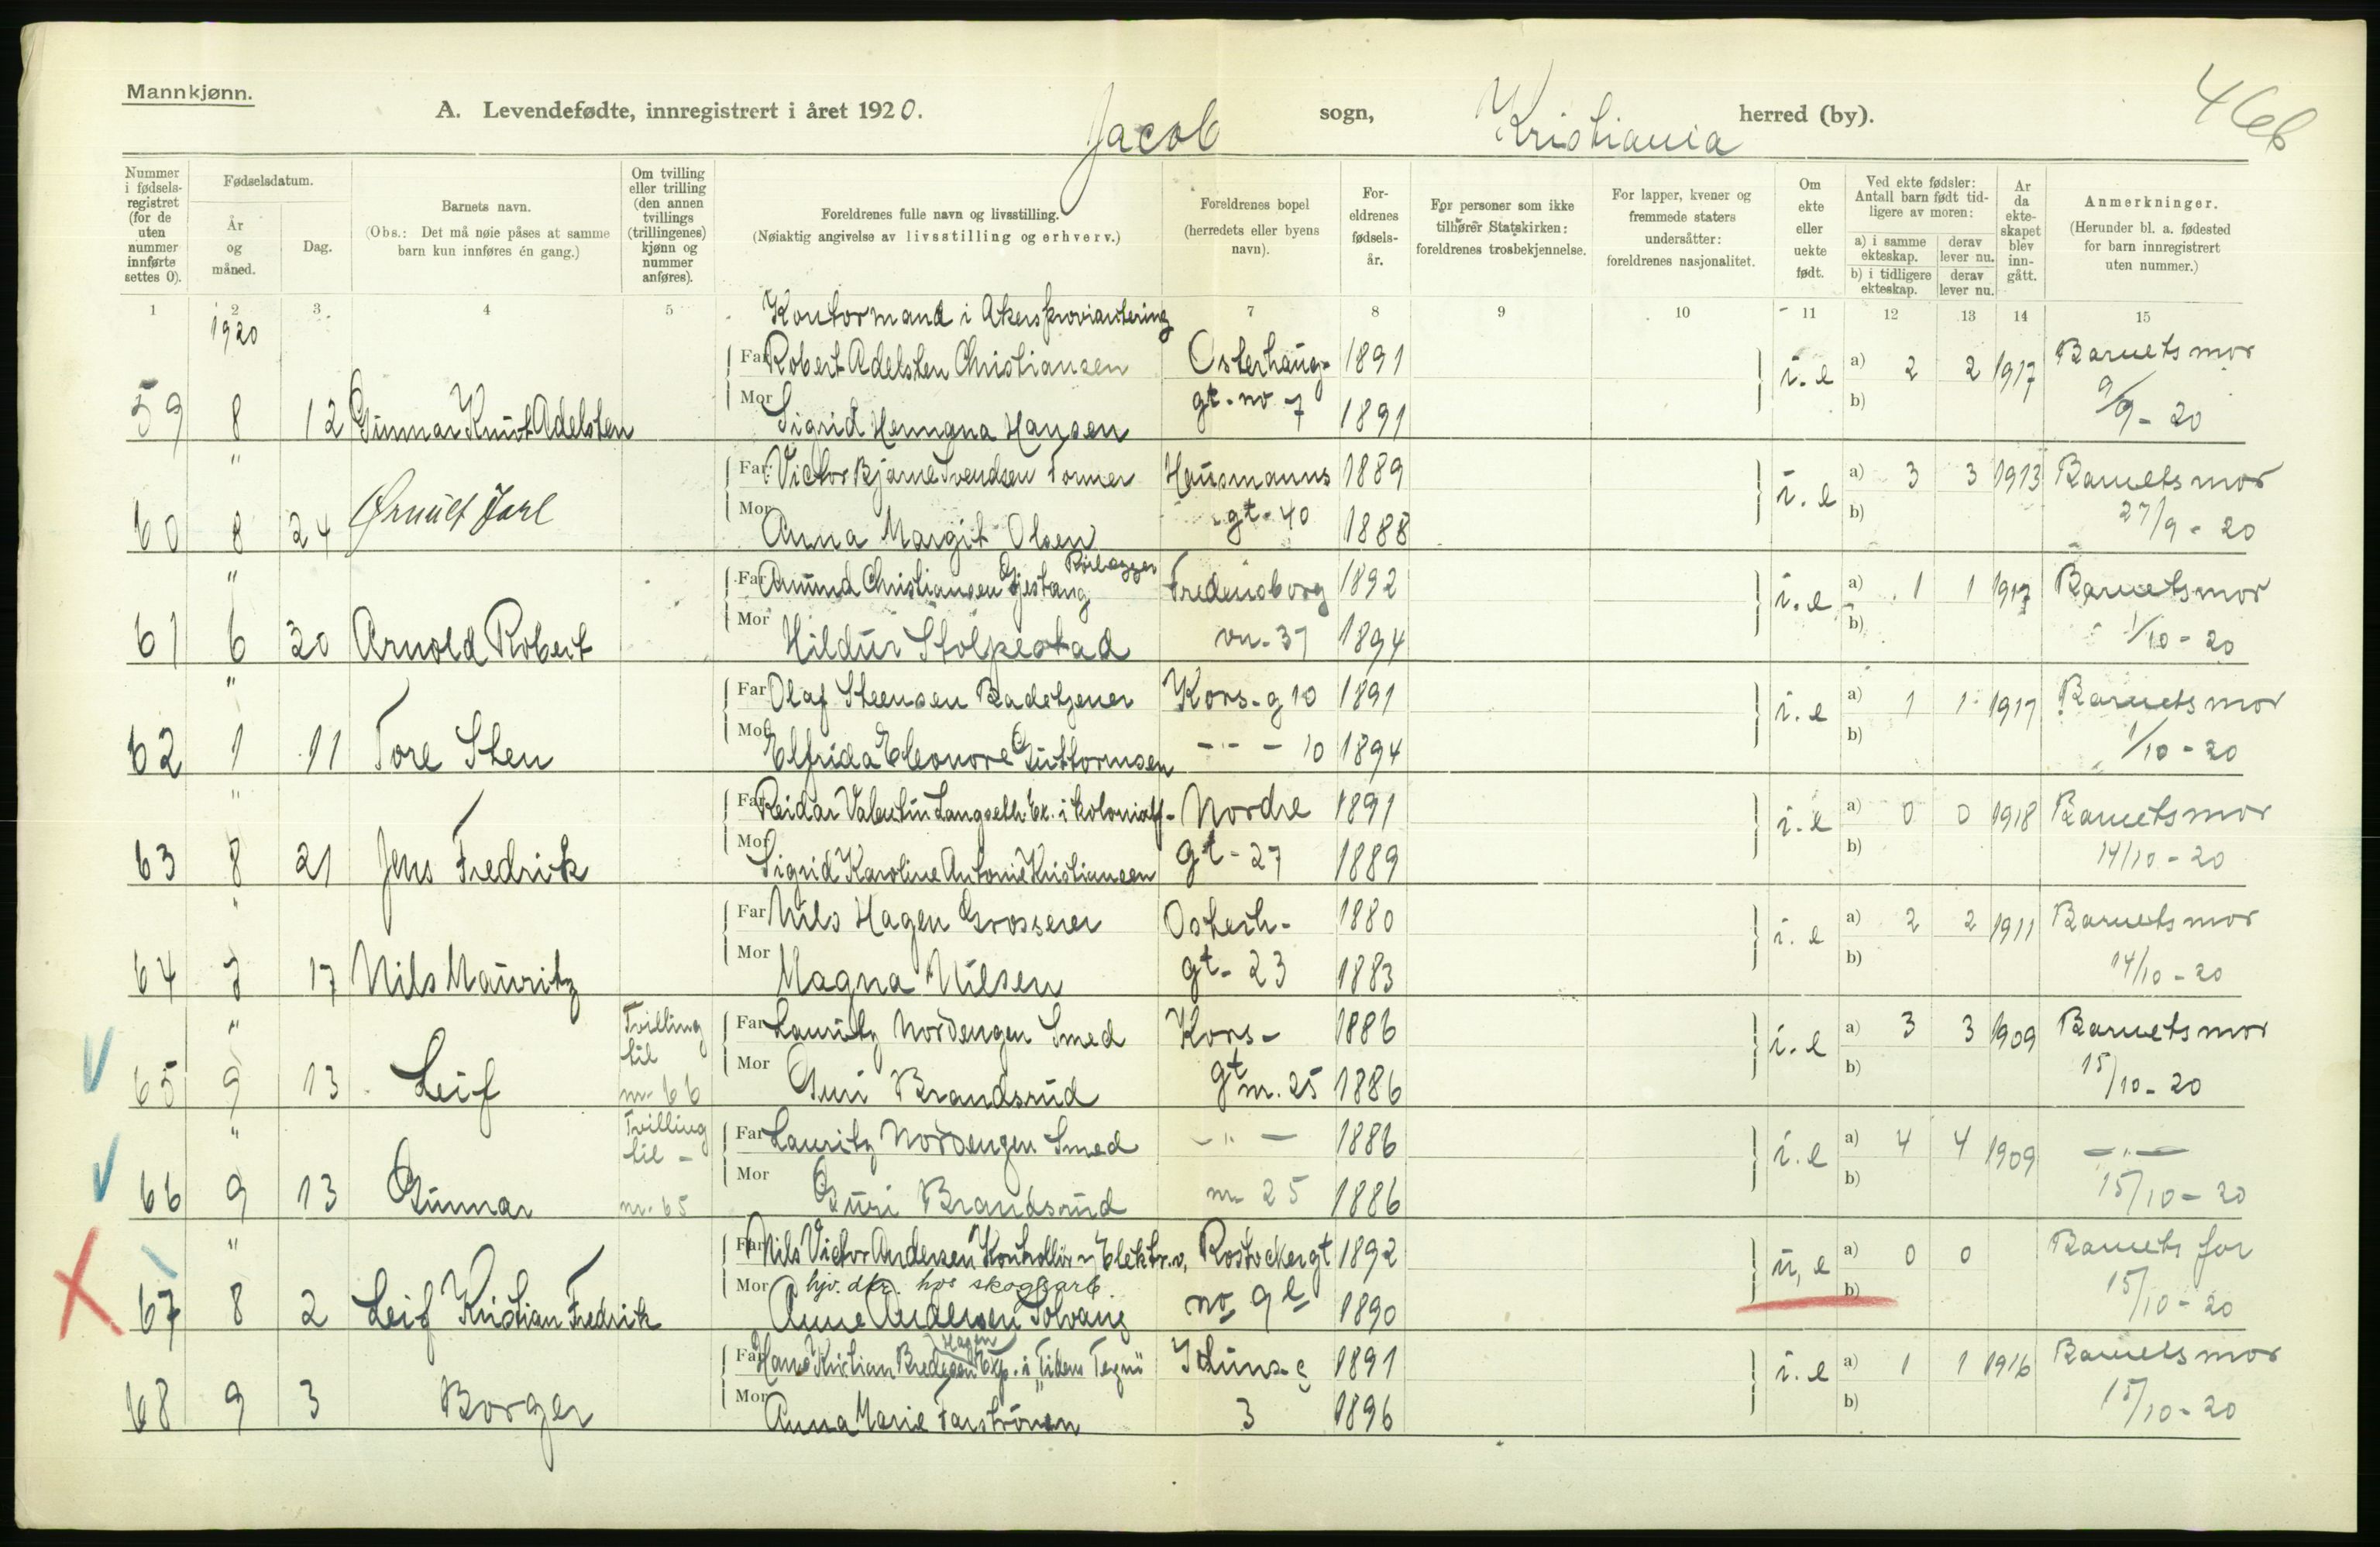 Mannkjønn.
A. Levendefødte, innregistrert i året 1920. Jacob sogn, Kristiania herred (by).
Nummer i fødsels-registret (for de uten nummer innførte settes 0).
Fødselsdatum.
År og måned.
Dag.
Barnets navn.
(Obs.: Det må nøie påses at samme barn kun innføres én gang.)
Om tvilling eller trilling (den annen tvillings (trillingenes) kjønn og nummer anføres).
Foreldrenes fulle navn og livsstilling.
(Nøiaktig angivelse av livsstilling og erhverv.)
Foreldrenes bopel (herredets eller byens navn).
For-eldrenes fødsels-år.
For personer som ikke tilhører Statskirken: foreldrenes trosbekjennelse.
For lapper, kvener og fremmede staters undersåtter: foreldrenes nasjonalitet.
Om ekte eller uekte født.
Ved ekte fødsler: Antall barn født tid-ligere av moren:
a) i samme ekteskap. derav lever nu.
b) i tidligere ekteskap. derav lever nu.
År da ekte-skapet blev inn-gått.
Anmerkninger.
(Herunder bl. a. fødested for barn innregistrert uten nummer.)
1 2 3 4 5 7 8 9 10 11 12 13 14 15
1920
Kontormand i Akers proviantering
Far Robert Adelsten Christiansen Osterhaug- 1891 i. e a) 2 2 1917 Barnets mor
59 8 12 Gunnar Knut Adelsten Mor Sigrid Hemgna Hansen gt. no 7 1891 b) 9/9 - 20
" Far Victor Bjarne Svendsen Former Hausmanns 1889 i. e a) 3 3 1913 Barnets mor
60 8 24 Ørnulf Jarl Mor Anna Margit Olsen gt. 40 1888 b) 27/9 - 20
" Far Amund Christiansen Gjestang Rørlægger Fredensborg 1892 i. e a) 1 1 1917 Barnets mor
61 6 20 Arnold Robert Mor Hildur Stolpestad vn. 37 1894 b) 1/10 - 20
" Far Olaf Steensen Badetjener Kors. g 10 1891 i. e a) 1 1 1917 Barnets mor
62 1 11 Tore Sten Mor Elfrida Eleonore Guttormsen - " - 10 1894 b) 1/10 - 20
" Far Reidar Valentin Langseth Ex. i kolonialf- Nordre 1891 i. e a) 0 0 1918 Barnets mor
63 8 21 Jens Fredrik Mor Sigrid Karoline Antonie Kristiansen gt - 27 1889 b) 14/10 - 20
" Far Nils Hagen Grosserer Osterh- 1880 i. e a) 2 2 1911 Barnets mor
64 7 17 Nils Mauritz Mor Magna Nilsen gt- 23 1883 b) 14/10 - 20
" Tvilling til Far Lauritz Nordengen Smed Kors- 1886 i. e a) 3 3 1909 Barnets mor
65 9 13 Leif nr. 66 Mor Guri Brandsrud gt nr. 25 1886 b) 15/10 - 20
" Tvilling til - Far Lauritz Nordengen Smed - " - 1886 i. e a) 4 4 1909 - " -
66 9 13 Gunnar nr. 65 Mor Guri Brandsrud nr 25 1886 b) 15/10 - 20
" Far Nils Victor Andersen Kontrollør v Elektr.v. Rostockergt 1892 u, e a) 0 0 Barnets far
hjv. dtr. hos skogsarb.
67 8 2 Leif Kristian Fredrik Mor Anne Andersen Solvang no 9 1890 b) 15/10 - 20
Hagen
Far Hans Kristian Exp. i "Tidens Tegn" Iduns g 1891 i. e a) 1 1 1916 Barnets mor
68 9 3 Borger Mor Anna Marie 3 1896 b) 15/10 - 20